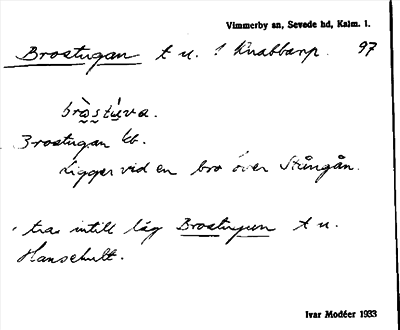 Vimmerby sn, Sevede hd, Kalm. l.
Brostugan t u. 1 Knabbarp. 97
bròstúva.
Brostugan kb.
Ligger vid en bro över Stångån.
intill låg Brostugun t u.
Hansehult.
Ivar Modéer 1933